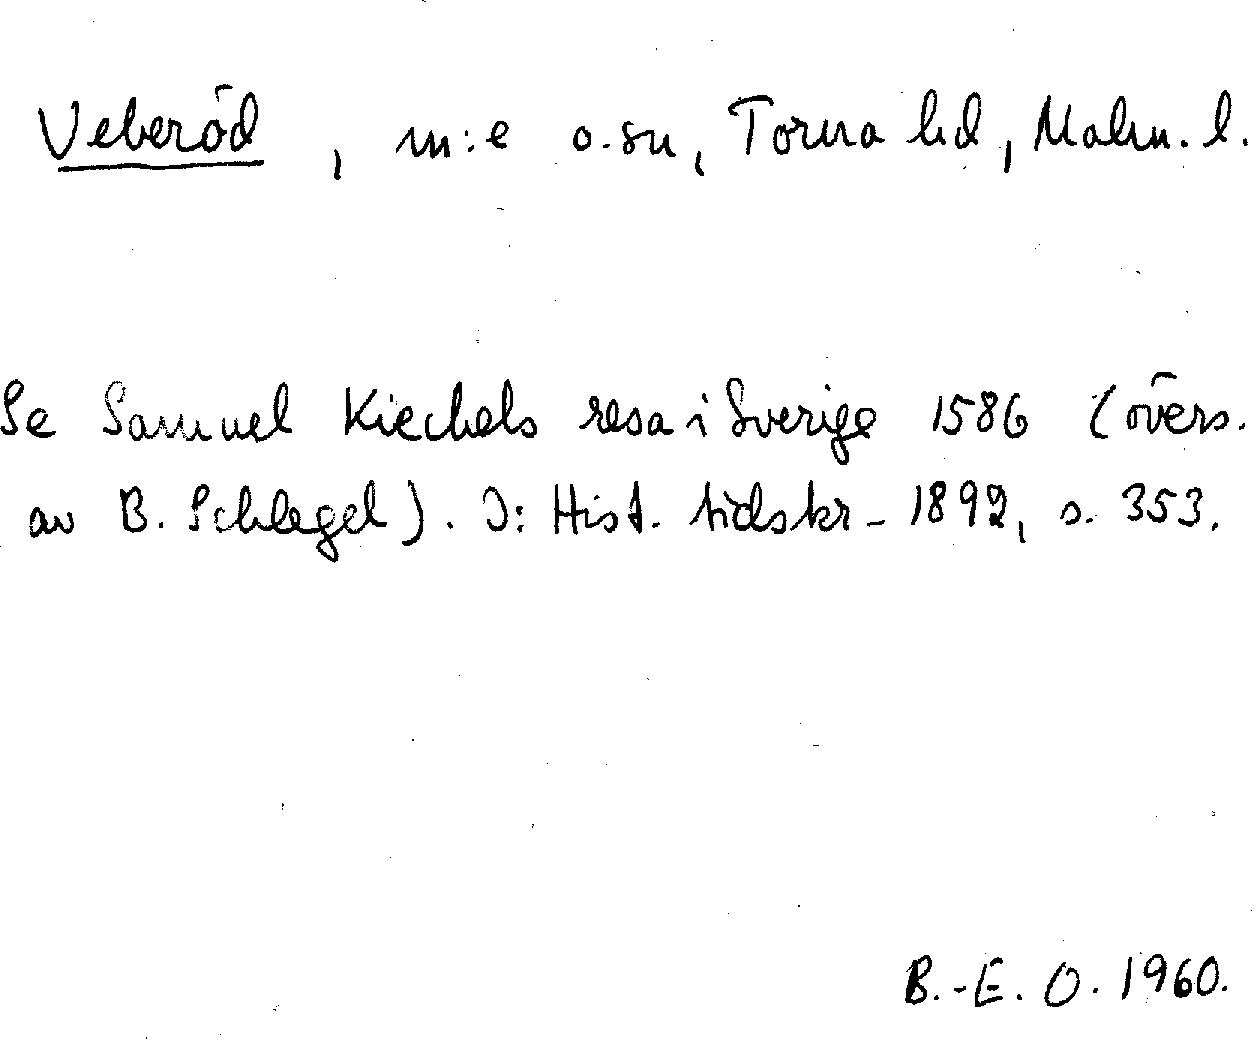 Veberöd, m:e o. sn, Torna hd, Malm. l.
Se Samuel Kiechels resa i Sverige 1586 (övers.
av B. Schlegel). I: Hist. tidskr. 1892, s. 353.
B.-E. O. 1960.